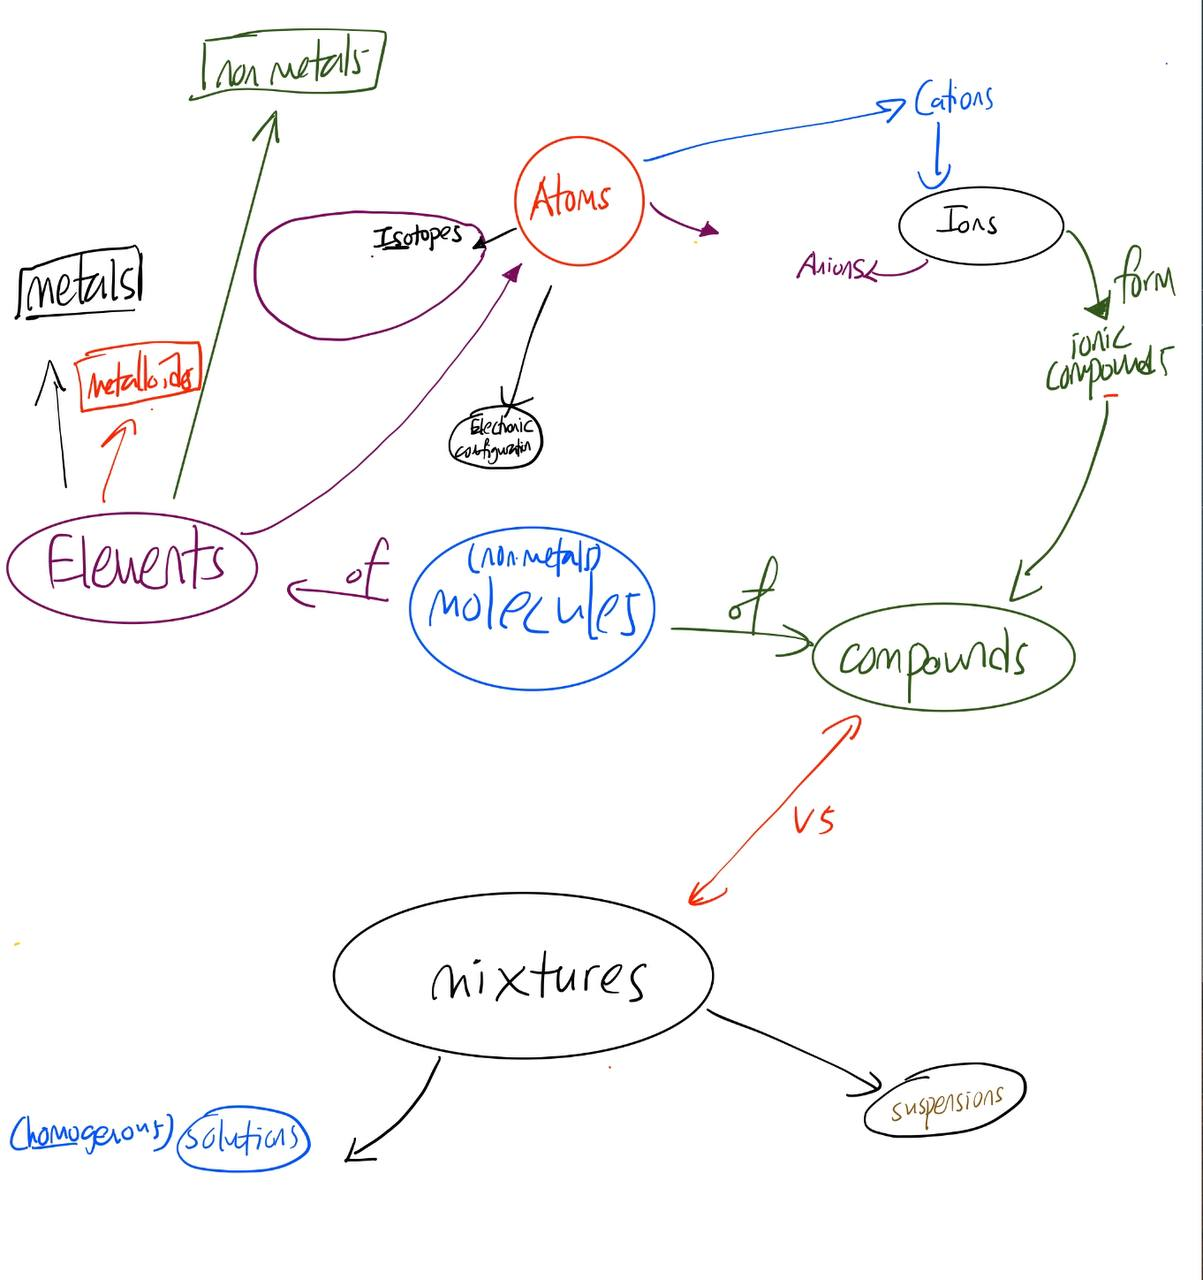 non metals
Cations
Atoms
Ions
Isotopes
Anions
form
metals
ionic
compounds
metalloids
Electronic
configuration
(non-metals)
Elements
of
molecules
of
compounds
vs
mixtures
suspensions
(homogenous) solutions